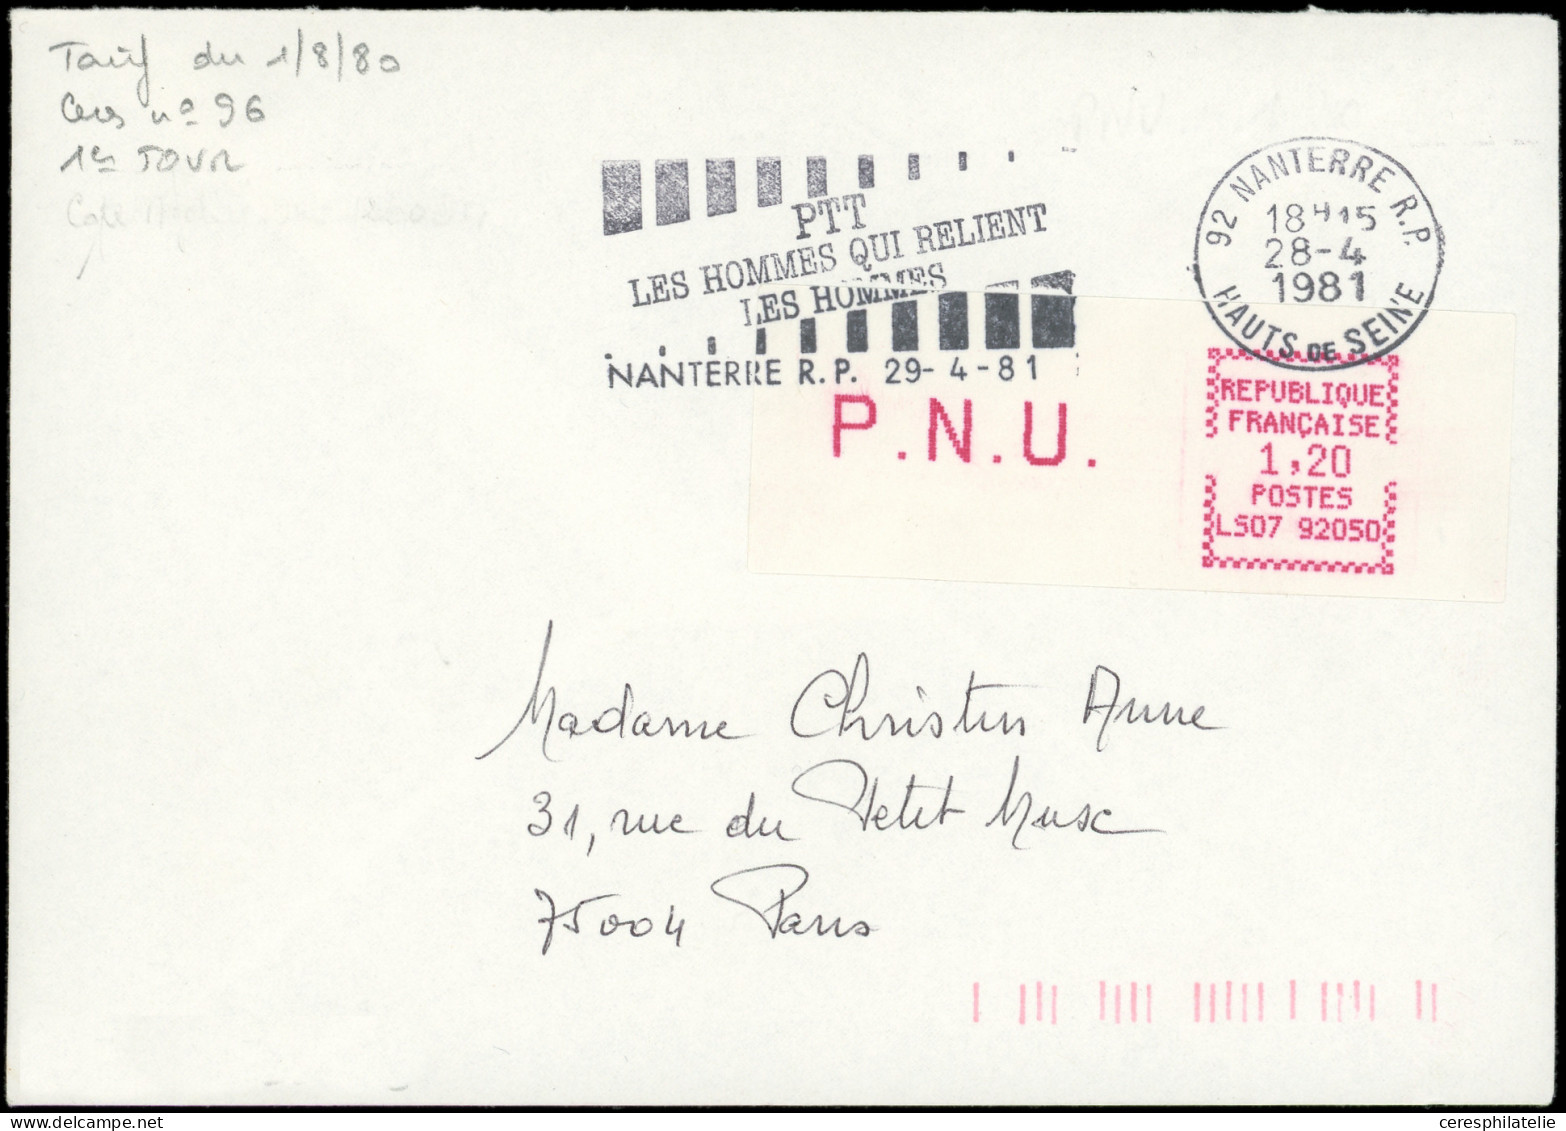 Tarif du 1/8/80
Ceres nº 96
1er TOUR
PTT
LES HOMMES QUI RELIENT
LES HOMMES
NANTERRE R.P. 29-4-81
92 NANTERRE R.P.
18H15
28-4
1981
HAUTS DE SEINE
P.N.U.
REPUBLIQUE
FRANÇAISE
1,20
POSTES
LS07 92050
Madame Christin Anne
31, rue du Petit Musc
75004 Paris
ceresphilatelie